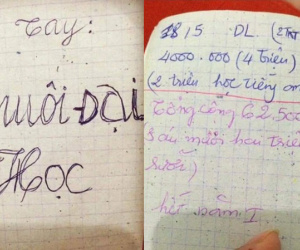 Tay:
NUÔI ĐẠI
HỌC
15 DL.
4000.000 (4 triệu)
(2 triệu học tiếng
Tổng cộng 62.500
Sáu mươi hai triệu
rưỡi)
hết năm I